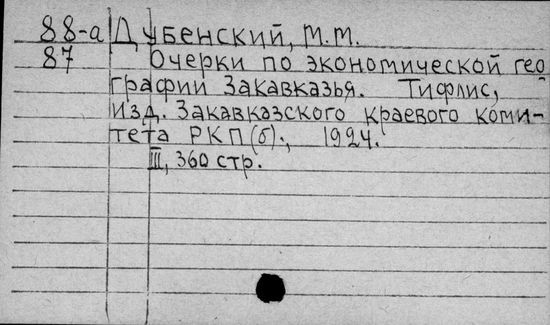 88-а Дубенский, М.М.
87 Очерки по экономической гео
графии Закавказья. Тифлис,
изд. Закавказского краевого коми-
тета РКП(б)., 1924.
III, 360 стр.